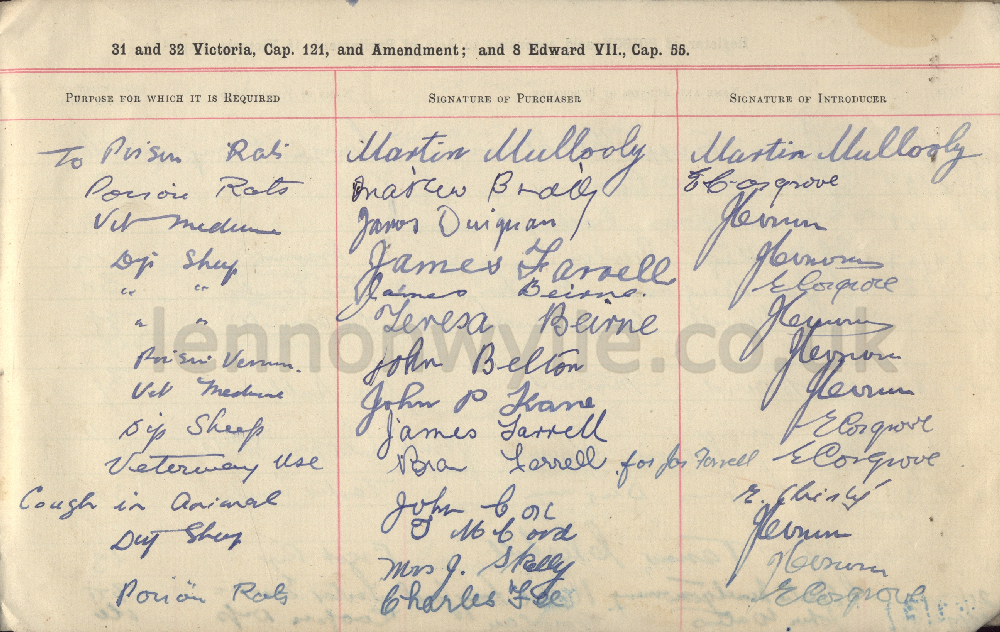 31 and 32 Victoria, Cap. 121, and Amendment; and 8 Edward VII., Cap. 55.
PURPOSE FOR WHICH IT IS REQUIRED SIGNATURE OF PURCHASER SIGNATURE OF INTRODUCER
To Poison Rats Martin Mullooly Martin Mullooly
Poison Rats Mathew Brady E Cosgrove
Vet Medicine James Quignan
Dip Sheep James Farrell
" " James Beirne. E Cosgrove
" " Teresa Beirne
lennonwylie.co.uk
Poison Vermin. John Belton
Vet Medicine John P Kane
Dip Sheep James Farrell E Cosgrove
Veterinary Use Farrell for Jas Farrell E Cosgrove
Cough in Animal John Cox
Dip Sheep J McCord
Mrs J. Skelly
Poison Rats Charles Fee E Cosgrove